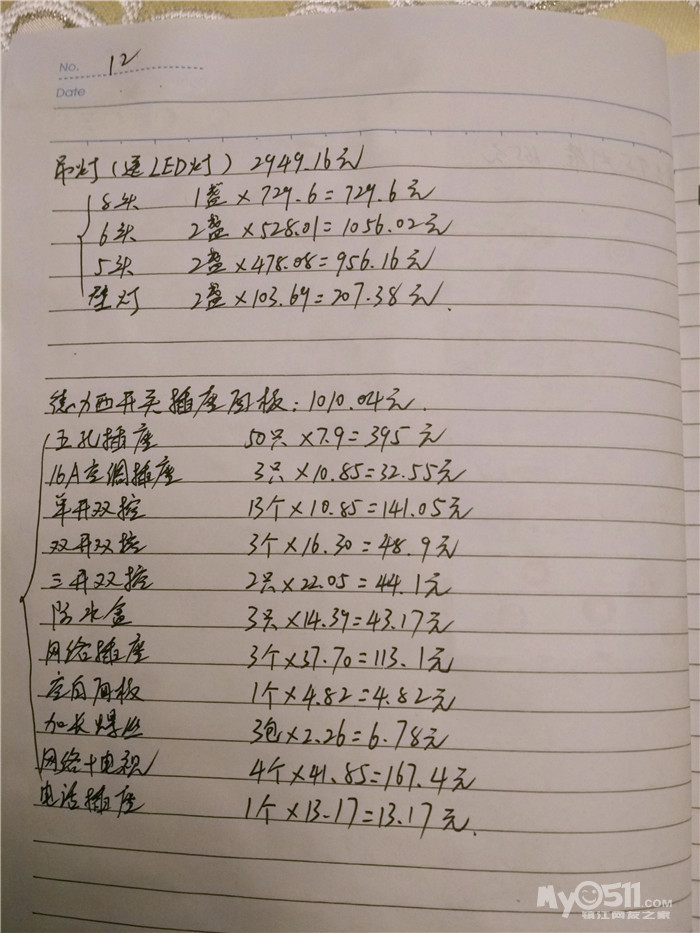 No. 12
Date
吊灯(送LED灯) 2949.16元
8头 1盏×729.6=729.6元
6头 2盏×528.01=1056.02元
5头 2盏×478.08=956.16元
壁灯 2盏×103.69=207.38元.
德力西开关插座面板:1010.04元.
五孔插座 50只×7.9=395元
16A空调插座 3只×10.85=32.55元
单开双控 13个×10.85=141.05元
双开双控 3个×16.30=48.9元
三开双控 2只×22.05=44.1元
防水盒 3只×14.39=43.17元
网络插座 3个×37.70=113.1元
空白面板 1个×4.82=4.82元
加长螺丝 3包×2.26=6.78元
网络+电视 4个×41.85=167.4元
电话插座 1个×13.17=13.17元.
My0511.COM
镇江网友之家